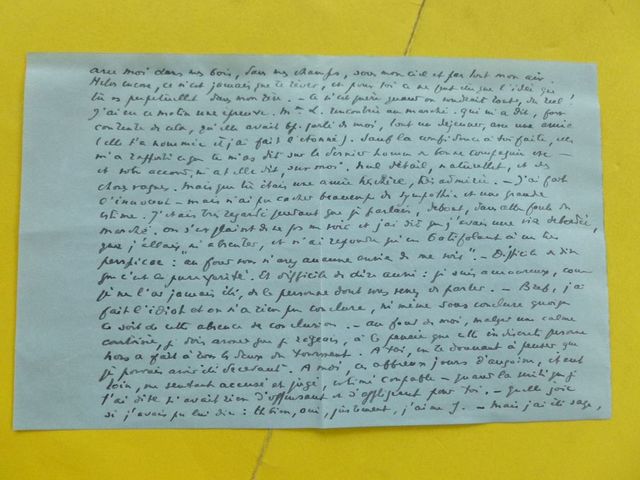 avec moi dans nos bois, dans nos champs, sous mon ciel et par tout mon air.
Hélas encore, ce n'est jamais que te rêver, et pour toi ce ne peut être que l'idée que
tu es perpétuelle dans mon être. - Ce n'est guère quand on voudrait tout, du réel !
J'ai eu ce matin une épreuve. Mme L. rencontrée au marché. Qui m'a dit, fort
contente de cela, qu'elle avait bp. parlé de moi, tout un déjeuner, avec une amie
(elle t'a nommée et j'ai fait l'étonné). Sauf la confidence à toi faite, elle
m'a rapporté ce que tu m'as dit sur le dernier homme de bonne compagnie etc -
et votre accord, m'a-t-elle dit, sur moi. Nul détail, naturellet, et des
choses vagues. Mais que tu étais une amie, très admirée. - J'ai fait
l'innocent - mais n'ai pu cacher beaucoup de sympathie et une grande
estime. J'étais très regardé pendant que je parlais, debout, dans cette foule du
marché. On s'est plaint de ne pas me voir et j'ai dit que j'avais une vie débordée,
que j'allais m'absenter, et m'a répondu qu'en batifolant à un très
perspicace : au fond vous n'avez aucune envie de me voir". - Difficile de dire
que c'est la pure vérité. Et difficile de dire aussi : je suis amoureux, comme
je ne l'ai jamais été, de la personne dont vous venez de parler. - Bref, j'ai
fait l'idiot et on n'a rien pu conclure, ni même sans conclure quoi que
ce soit de cette absence de conclusion. - Au fond de moi, malgré un calme
, je dois avouer que je rageais, à la pensée que cette indiscrète personne
nous a fait à tous les deux du tourment. A toi, en te donnant à penser que
je pouvais avoir été décevant. A moi, ces affreux jours d'angoisse, étant
loin, me sentant accusé et jugé, estimé coupable - quand la vérité que je
t'ai dite n'avait rien d'offensant ni d'affligeant pour toi. - Quelle joie
si j'avais pu lui dire : Eh bien, oui, justement, j'aime J. - Mais j'ai été sage,